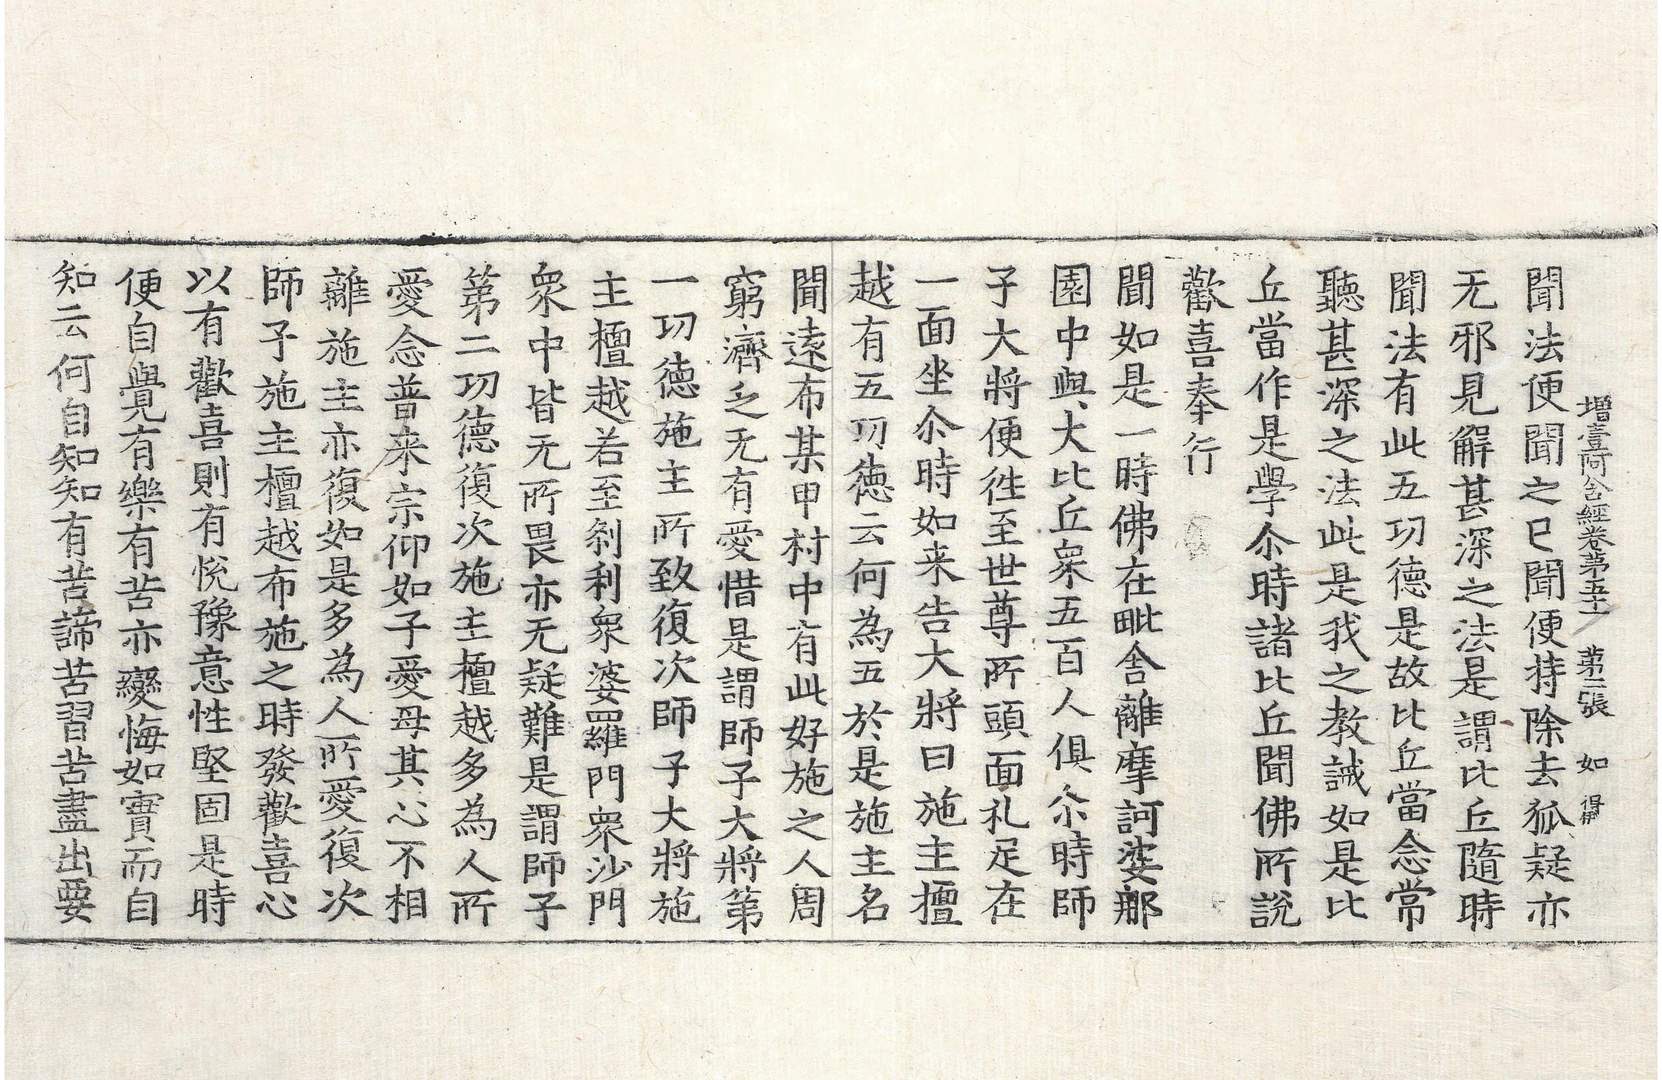 增壹阿含經卷第五十 第二張 如
聞法便聞之已聞便持除去狐疑亦
无邪見解甚深之法是謂比丘隨時
聞法有此五功德是故比丘當念常
聽甚深之法此是我之教誡如是比
丘當作是學尒時諸比丘聞佛所說
歡喜奉行
聞如是一時佛在毗舍離摩訶婆那
園中與大比丘衆五百人俱尒時師
子大將便徃至世尊所頭面礼足在
一面坐尒時如来告大將曰施主檀
越有五功德云何為五於是施主名
聞遠布某甲村中有此好施之人周
窮濟乏无有愛惜是謂師子大將第
一功德施主所致復次師子大將施
主檀越若至刹利衆婆羅門衆沙門
衆中皆无所畏亦无疑難是謂師子
第二功德復次施主檀越多為人所
愛念普来宗仰如子愛母其心不相
離施主亦復如是多為人所愛復次
師子施主檀越布施之時發歡喜心
以有歡喜則有悅豫意性堅固是時
便自覺有樂有苦亦變悔如實而自
知云何自知知有苦諦苦習苦盡出要